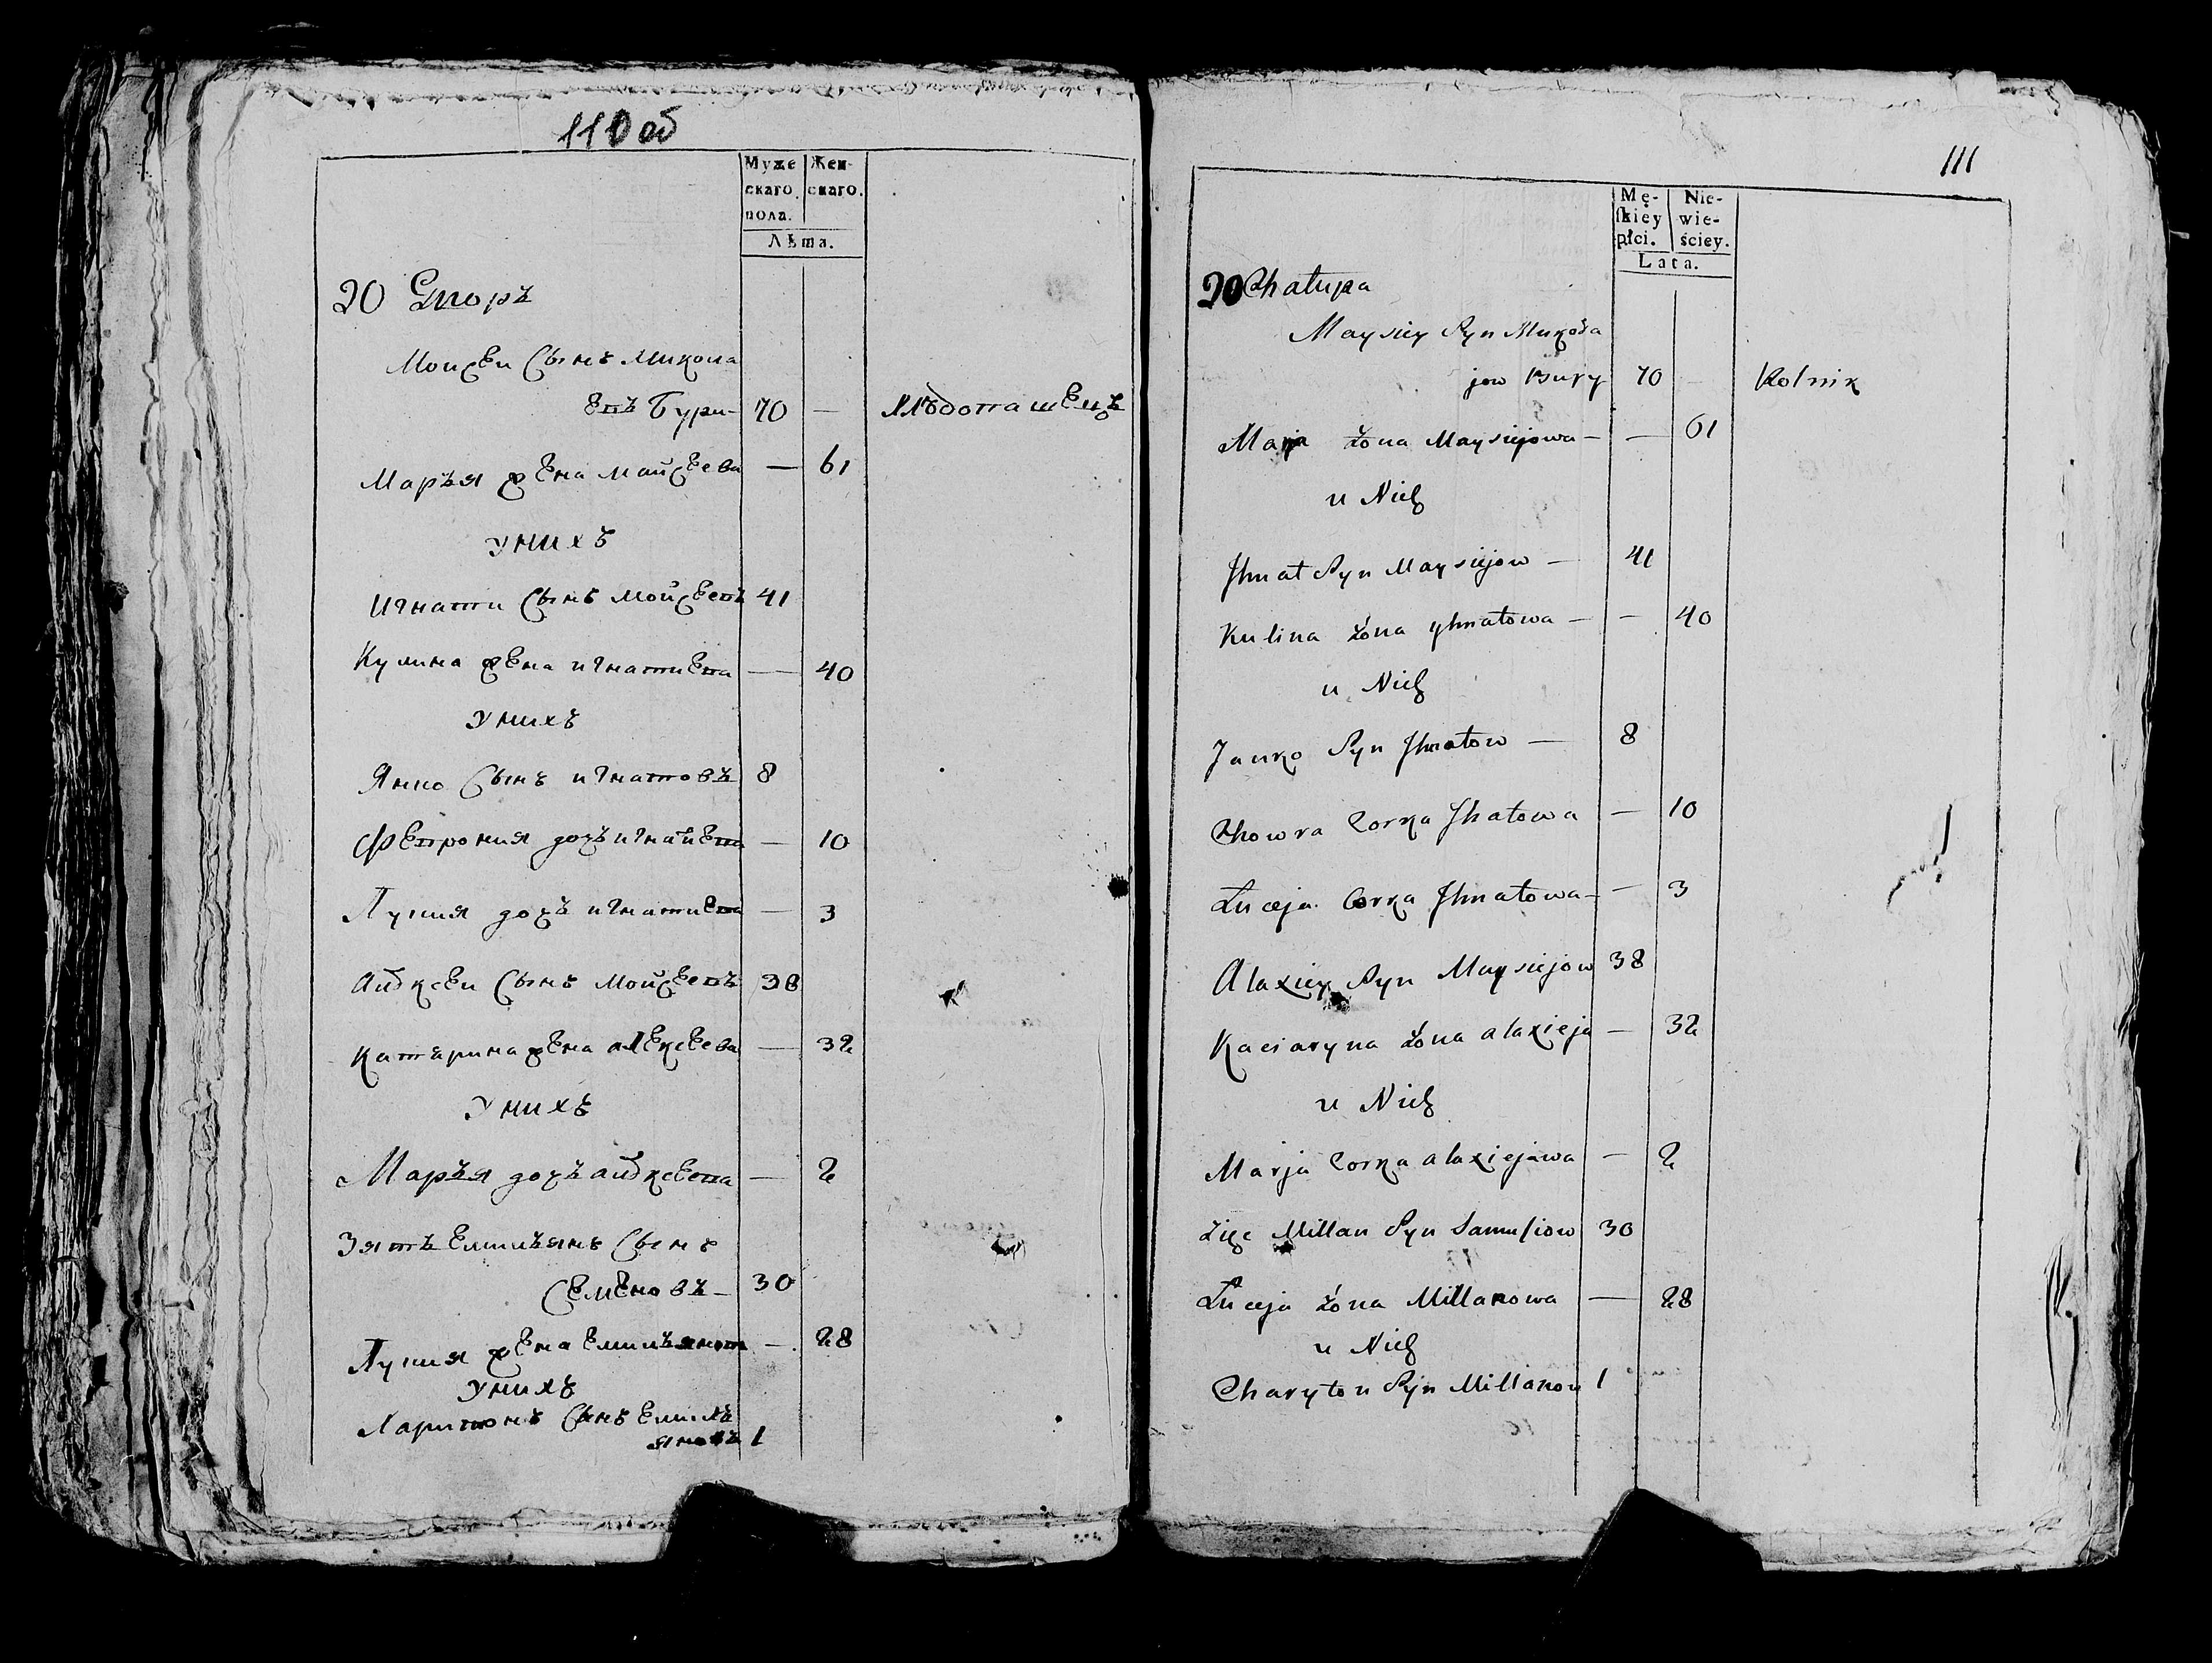 110 об
Муже
скаго
пола.
Жен-
скаго.
Лѣта.
20 Дворъ
Моисеи Сынъ Микола
евъ Бури- 70 —
Марья жена Мойсеева — 61
У нихъ
Игнати Сынъ Мойсеевъ 41
Кулина жена игнатиева — 40
У нихъ
Янко Сынъ игнатовъ 8
Феврония дочъ игнатиева — 10
Луция дочъ игнатиева — 3
Алексеи Сынъ Мойсеевъ 38
Катярина жена алексеева — 32
У нихъ
Марья дочъ алексеева — 2
Зять Емильянъ Сынъ
Семеновъ- 30
Луция жена Емильянова — 28
У нихъ
Харитонъ Сынъ Емилъ
яновъ 1
111
Mę-
skiey
płci.
Nie-
wie-
ściey.
Lata.
20 Chałupa
Maysiey Syn Mikoła
jow Bury 70 — Rolnik
Marja żona Maysiejowa — — 61
u Nich
Jhnat Syn Maysiejow — 41
Kulina żona yhnatowa — — 40
u Nich
Janko Syn Jhnatow — 8
Chowra Corka Jhatowa — 10
Łuceja Corka Jhnatowa — — 3
Alaxiey Syn Maysiejow 38
Kaciaryna żona alaxieja — 32
u Nich
Marja Corka alaxiejawa — 2
Zięc Millan Syn Samusiow 30
Łuceja żona Millanowa — 28
u Nich
Charyton Syn Millanow 1